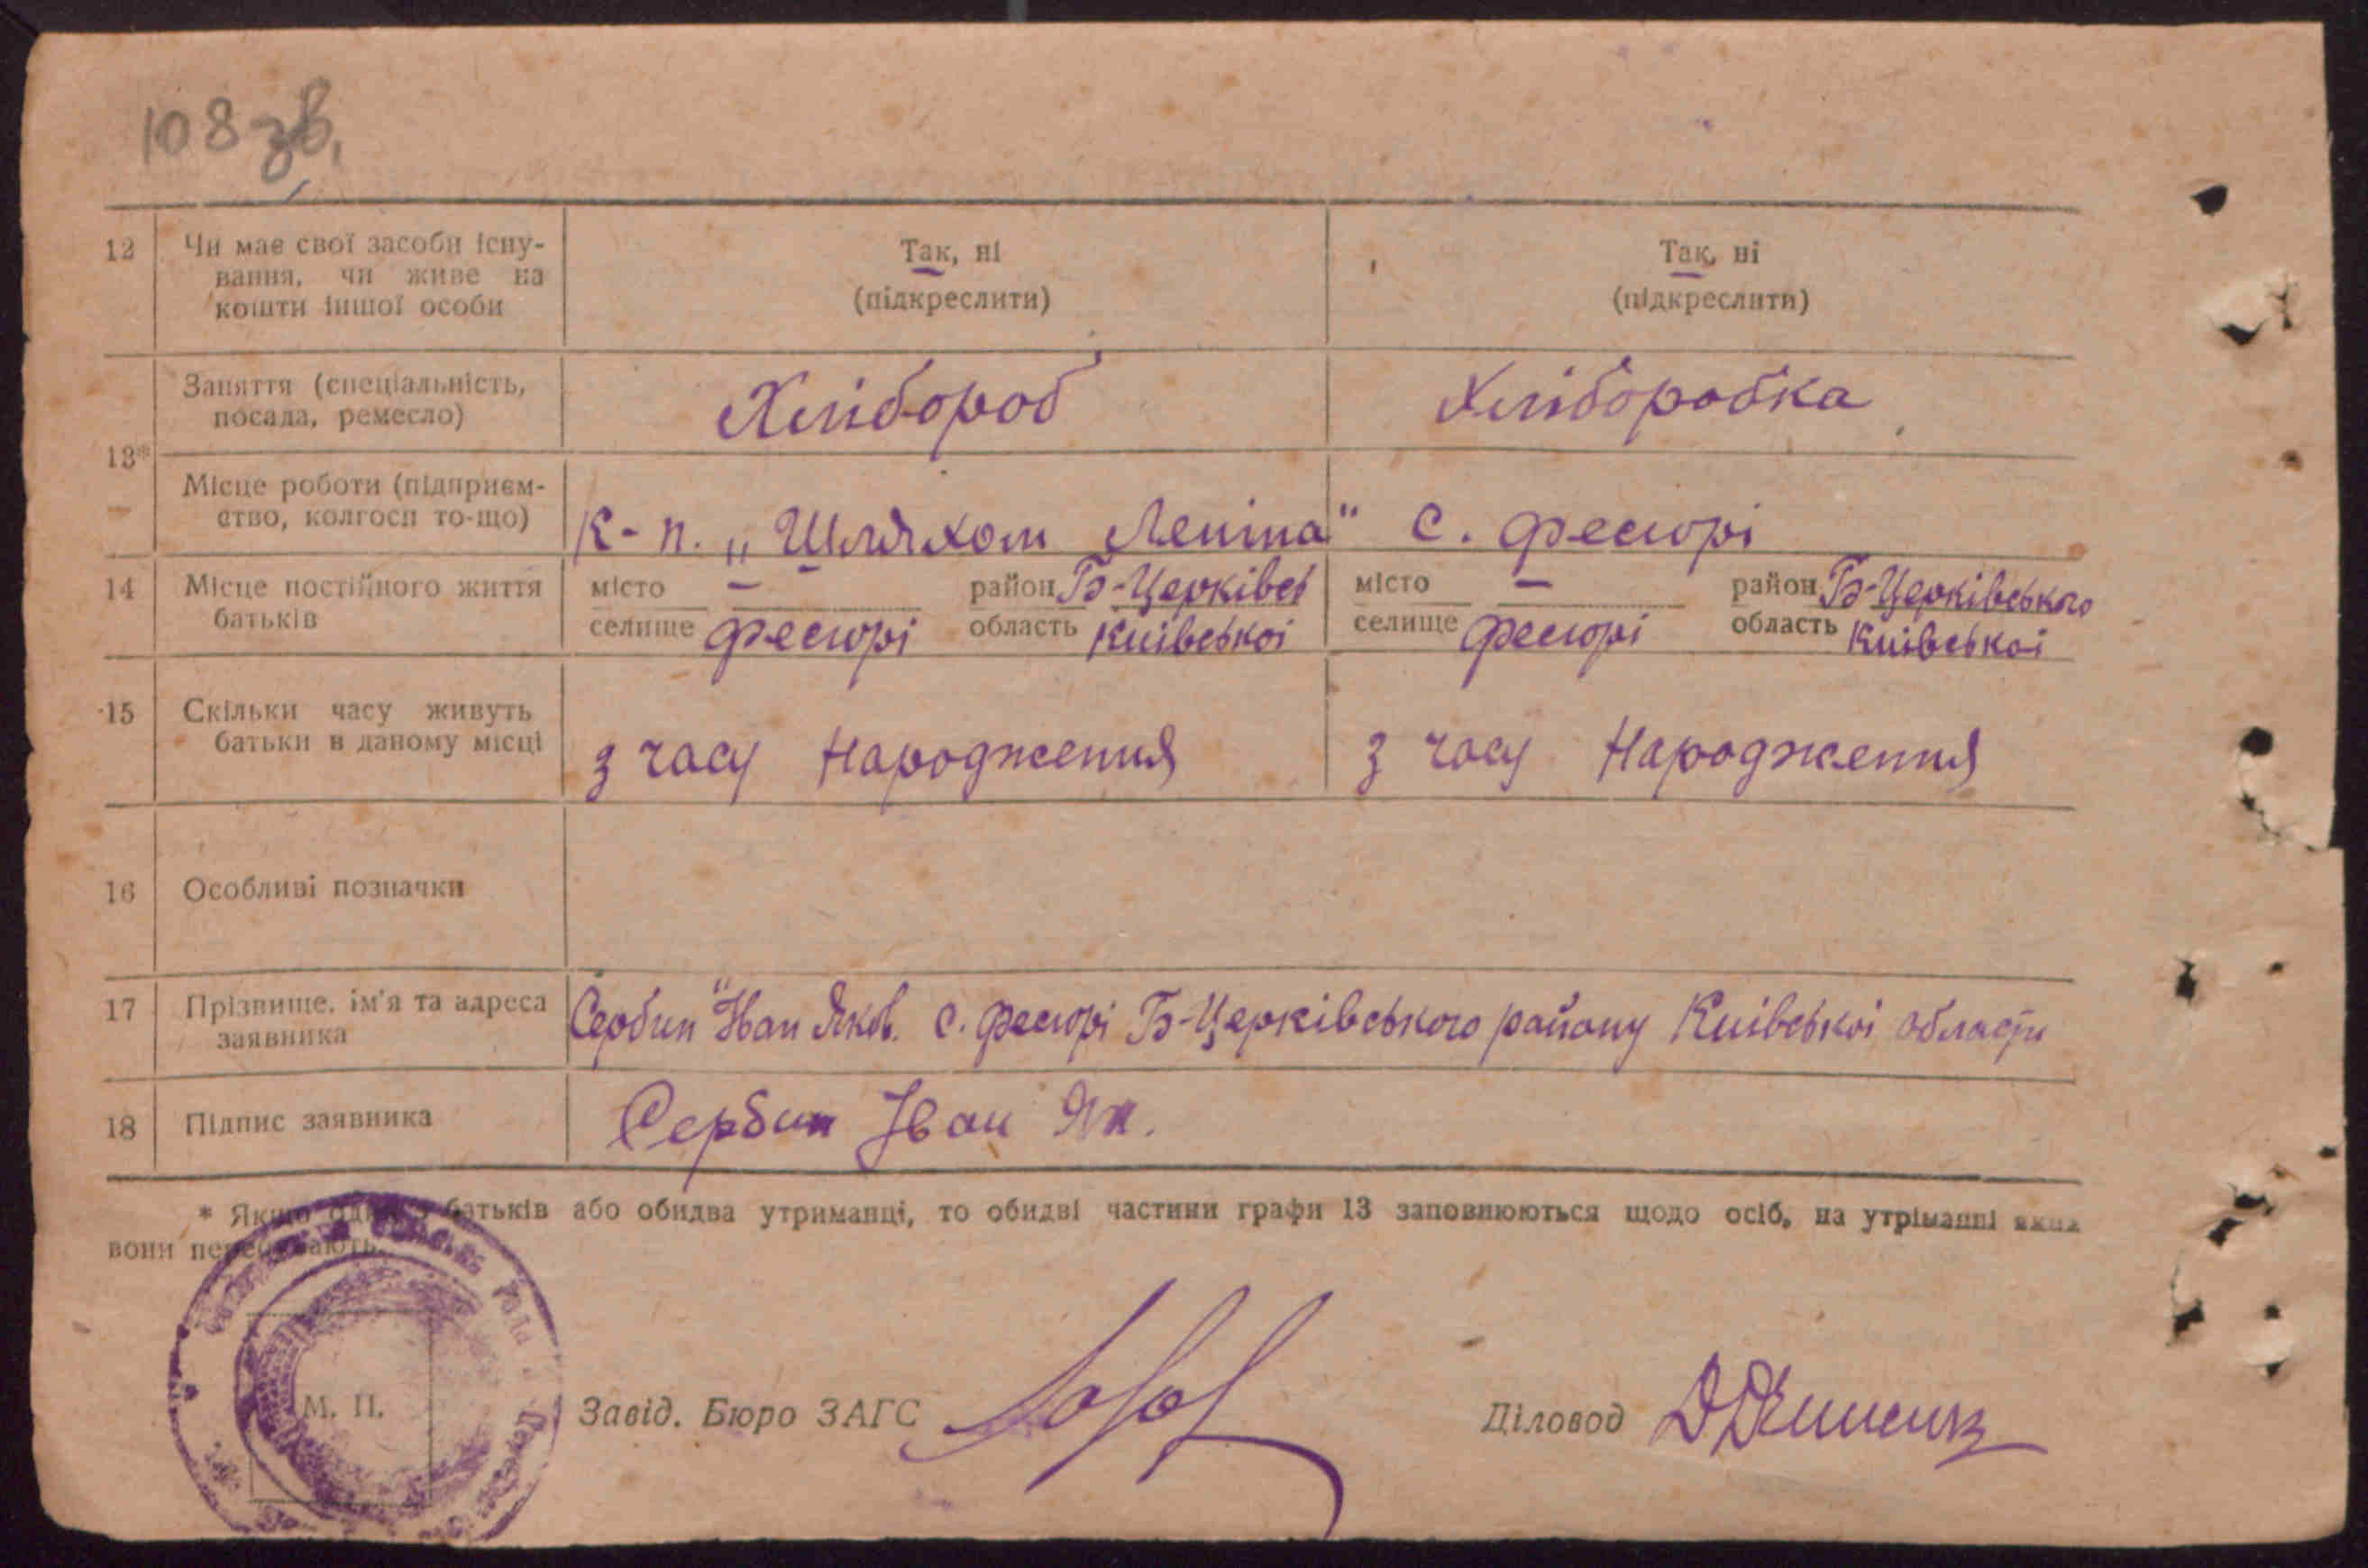 108 зв.
12 Чи має свої засоби існу- Так, ні Так, ні
вання, чи живе на (підкреслити) (підкреслити)
кошти іншої особи
Заняття (спеціальність, Хлібороб Хлібробка
посада, ремесло)
13*
Місце роботи (підприєм-
ство, колгосп то-що) К-п. „Шляхом Леніна" с. Фесюрі
14 Місце постійного життя місто — район Б-Церківськ місто — район Б-Церківського
батьків селище Фесюрі область Київської селище Фесюрі область Київської
15 Скільки часу живуть
батьки в даному місці з часу Народження з часу Народження
16 Особливі позначки
17 Прізвище, ім'я та адреса Сербин Іван Яков. с. Фесюрі Б-Церківського району Київської области
заявника
18 Підпис заявника Сербин Іван Як.
* Якщо один з батьків або обидва утриманці, то обидві частини графи 13 заповнюються щодо осіб, на утріманні яких
вони перебувають.
М. П. Завід. Бюро ЗАГС Діловод